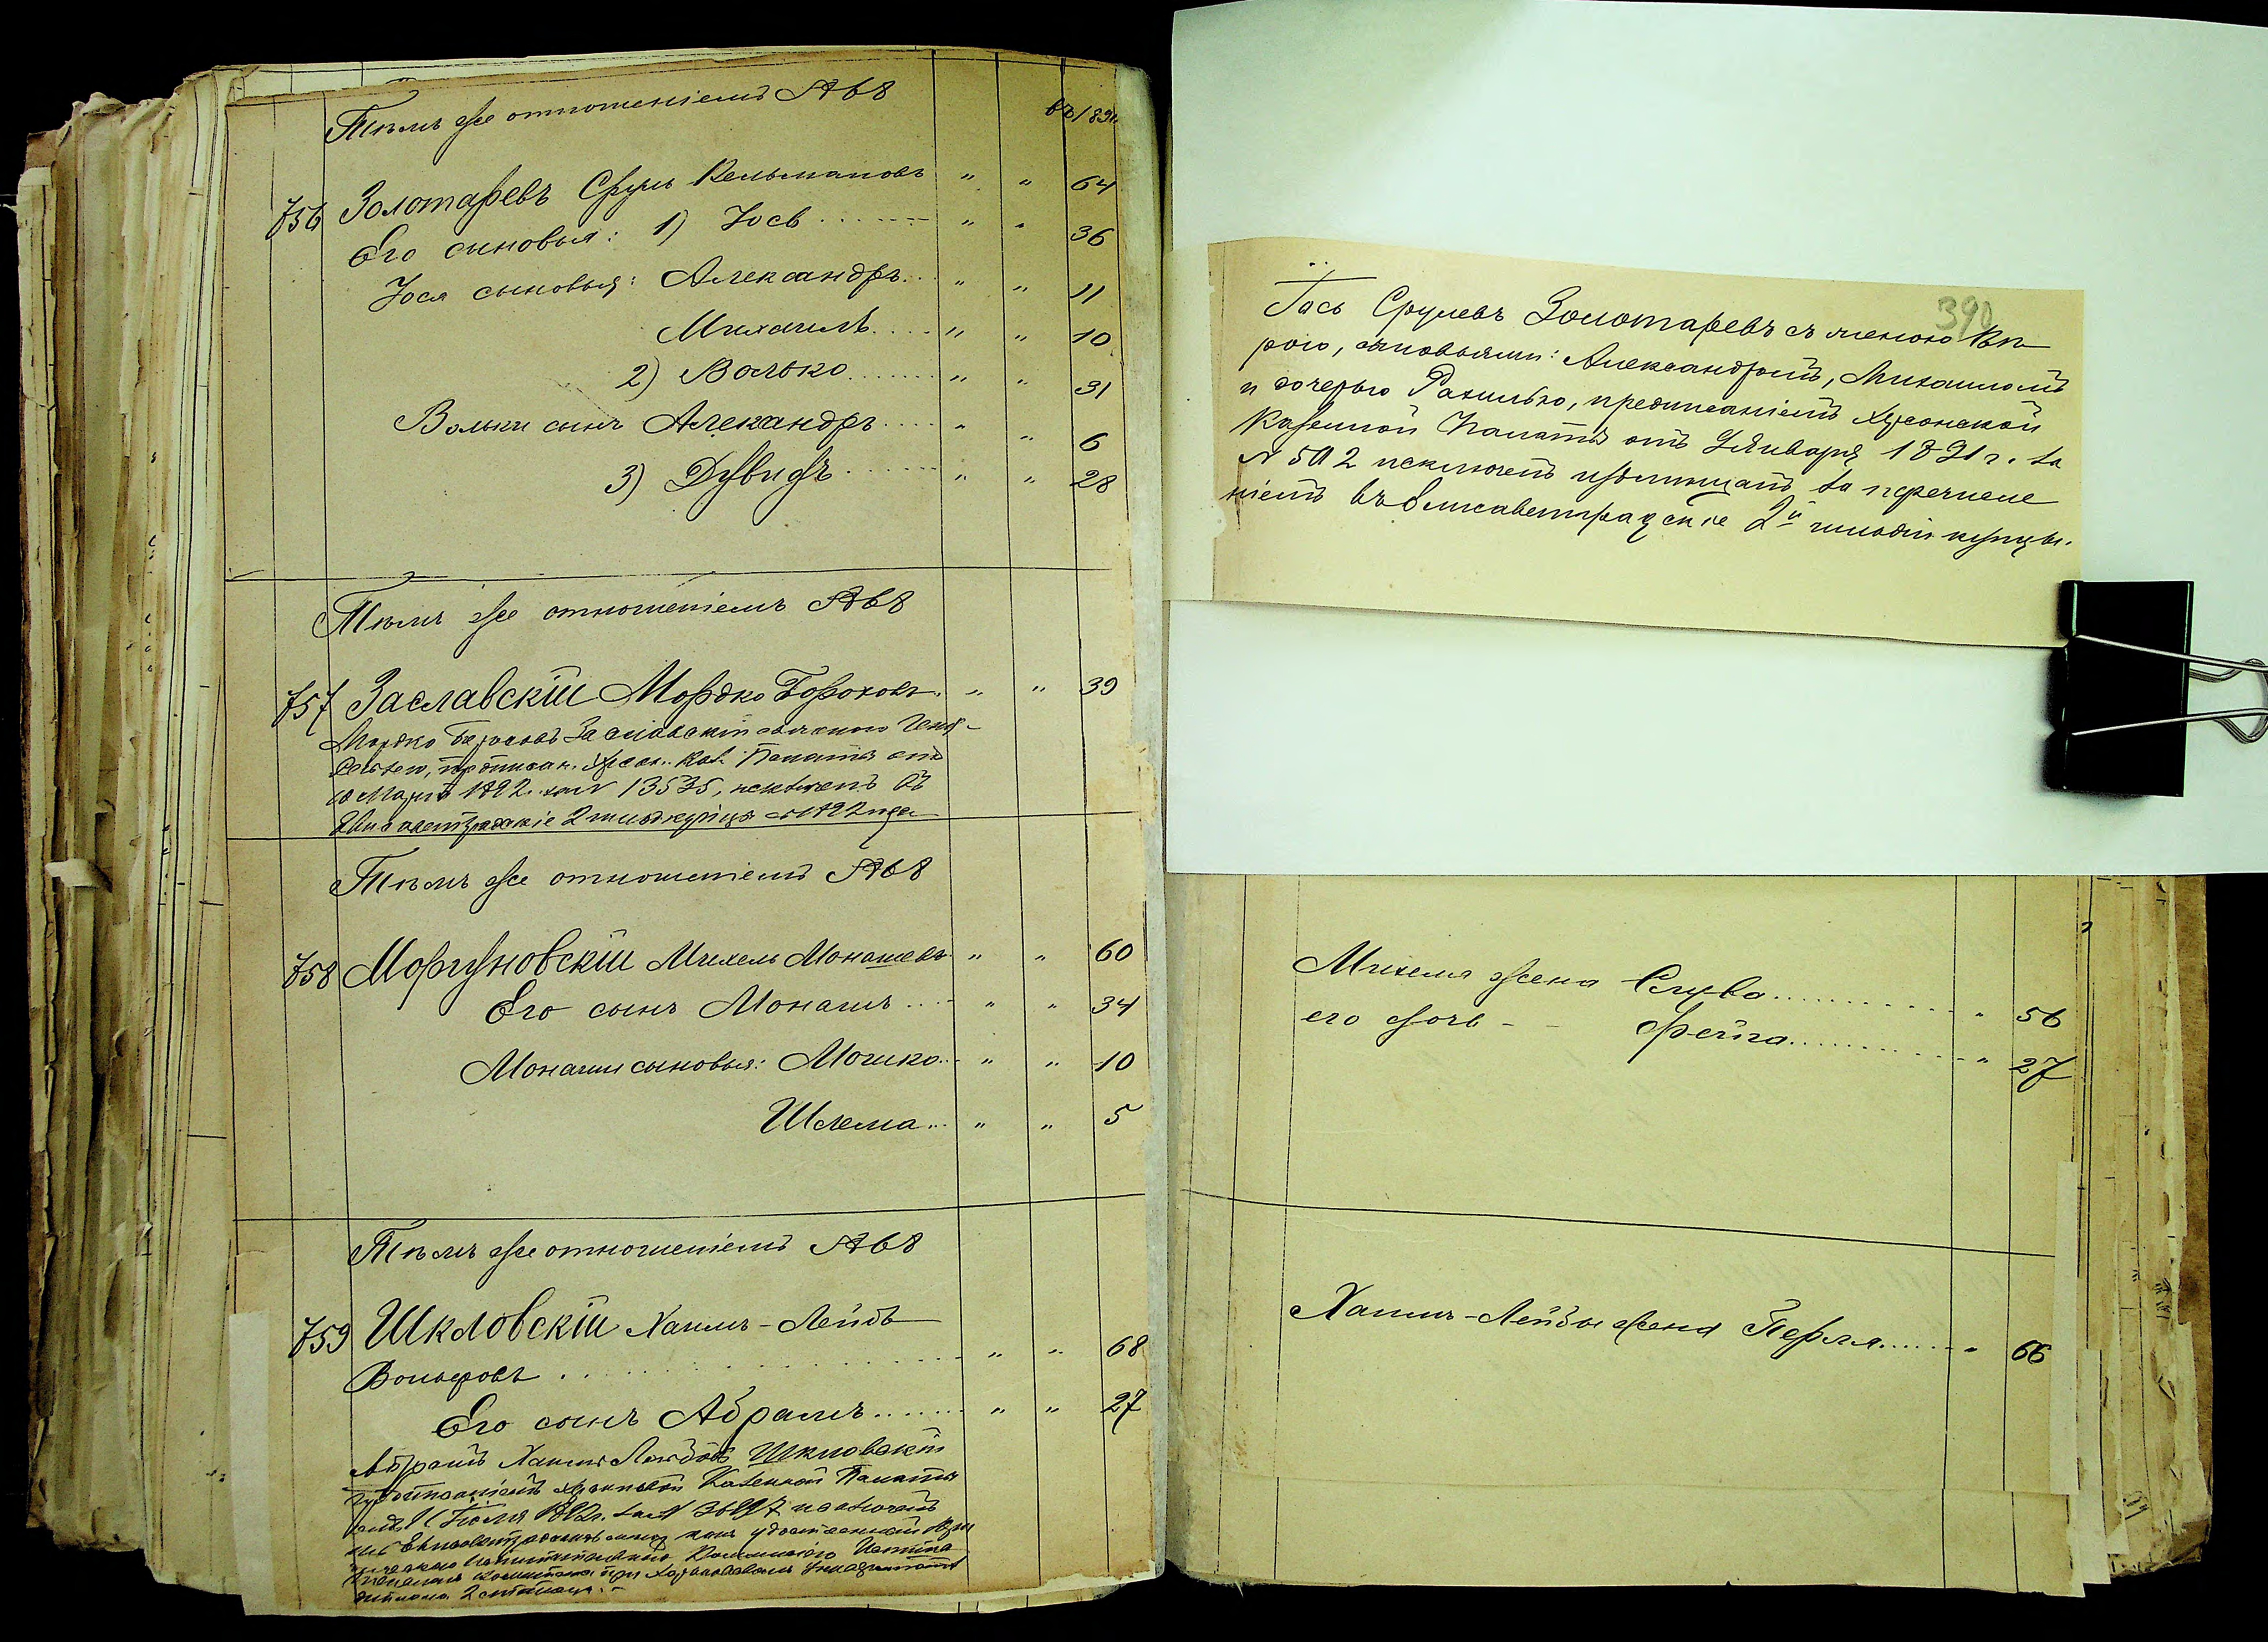 Тѣмъ же отношеніемъ № 68
въ 1891
756 Золотаревъ Сруль Кельмановъ " " 64
Его сыновья: 1) Іось " " 36
Іося сыновья: Александръ " " 11
Михаилъ " " 10
2) Волько " " 31
Вольки сынъ Александръ " " 6
3) Дувидъ " " 28
Тѣмъ же отношеніемъ № 68
757 Заславскій Мордко Бороховъ " " 39
Мордко Бороховъ Заславскій съ женою
предписан. Херсон. Каз. Палаты отъ
10 Марта 1892 за № 13535, исключенъ въ
Елисаветградскіе 2 гильд купцы съ 1892 года
Тѣмъ же отношеніемъ № 68
758 Моргуновскій Михель Монашевъ " " 60
Его сынъ Монашъ " " 34
Монаши сыновья: Мошко " " 10
Шлема " " 5
Тѣмъ же отношеніемъ № 68
759 Шкловскій Хаимъ-Лейбъ
Вольфовъ " " 68
Его сынъ Абрамъ " " 27
Абрамъ Хаимъ Лейбовъ Шкловскій
предписаніемъ Херсонской Казенной Палаты
Іюля за № исключенъ
изъ Елисаветградскихъ мѣщ. какъ удостоенный
Испыта
комитета при Харьковскомъ Университетѣ
диплома 2 степени.
390
Іось Срулевъ Золотаревъ съ женою Вѣ-
рою, сыновьями: Александромъ, Михаиломъ
и дочерью Рахилью, предписаніемъ Херсонской
Казенной Палаты отъ Января 1891 г. за
№ 502 исключенъ изъ мѣщанъ за перечисле
ніемъ въ Елисаветградскіе 2й гильдіи купцы.
Михеля жена Слува " 56
его дочь - - Фейга " 27
Хаимъ-Лейбы жена Перля " 66